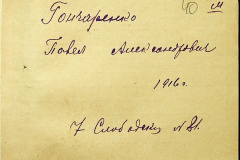 Гончаренко 40 м
Павел Александрович
1916 г.
7 Слободская № 81.